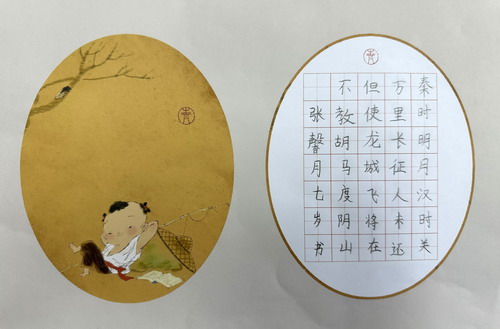 秦时明月汉时关
万里长征人未还
但使龙城飞将在
不教胡马度阴山
张馨月七岁书